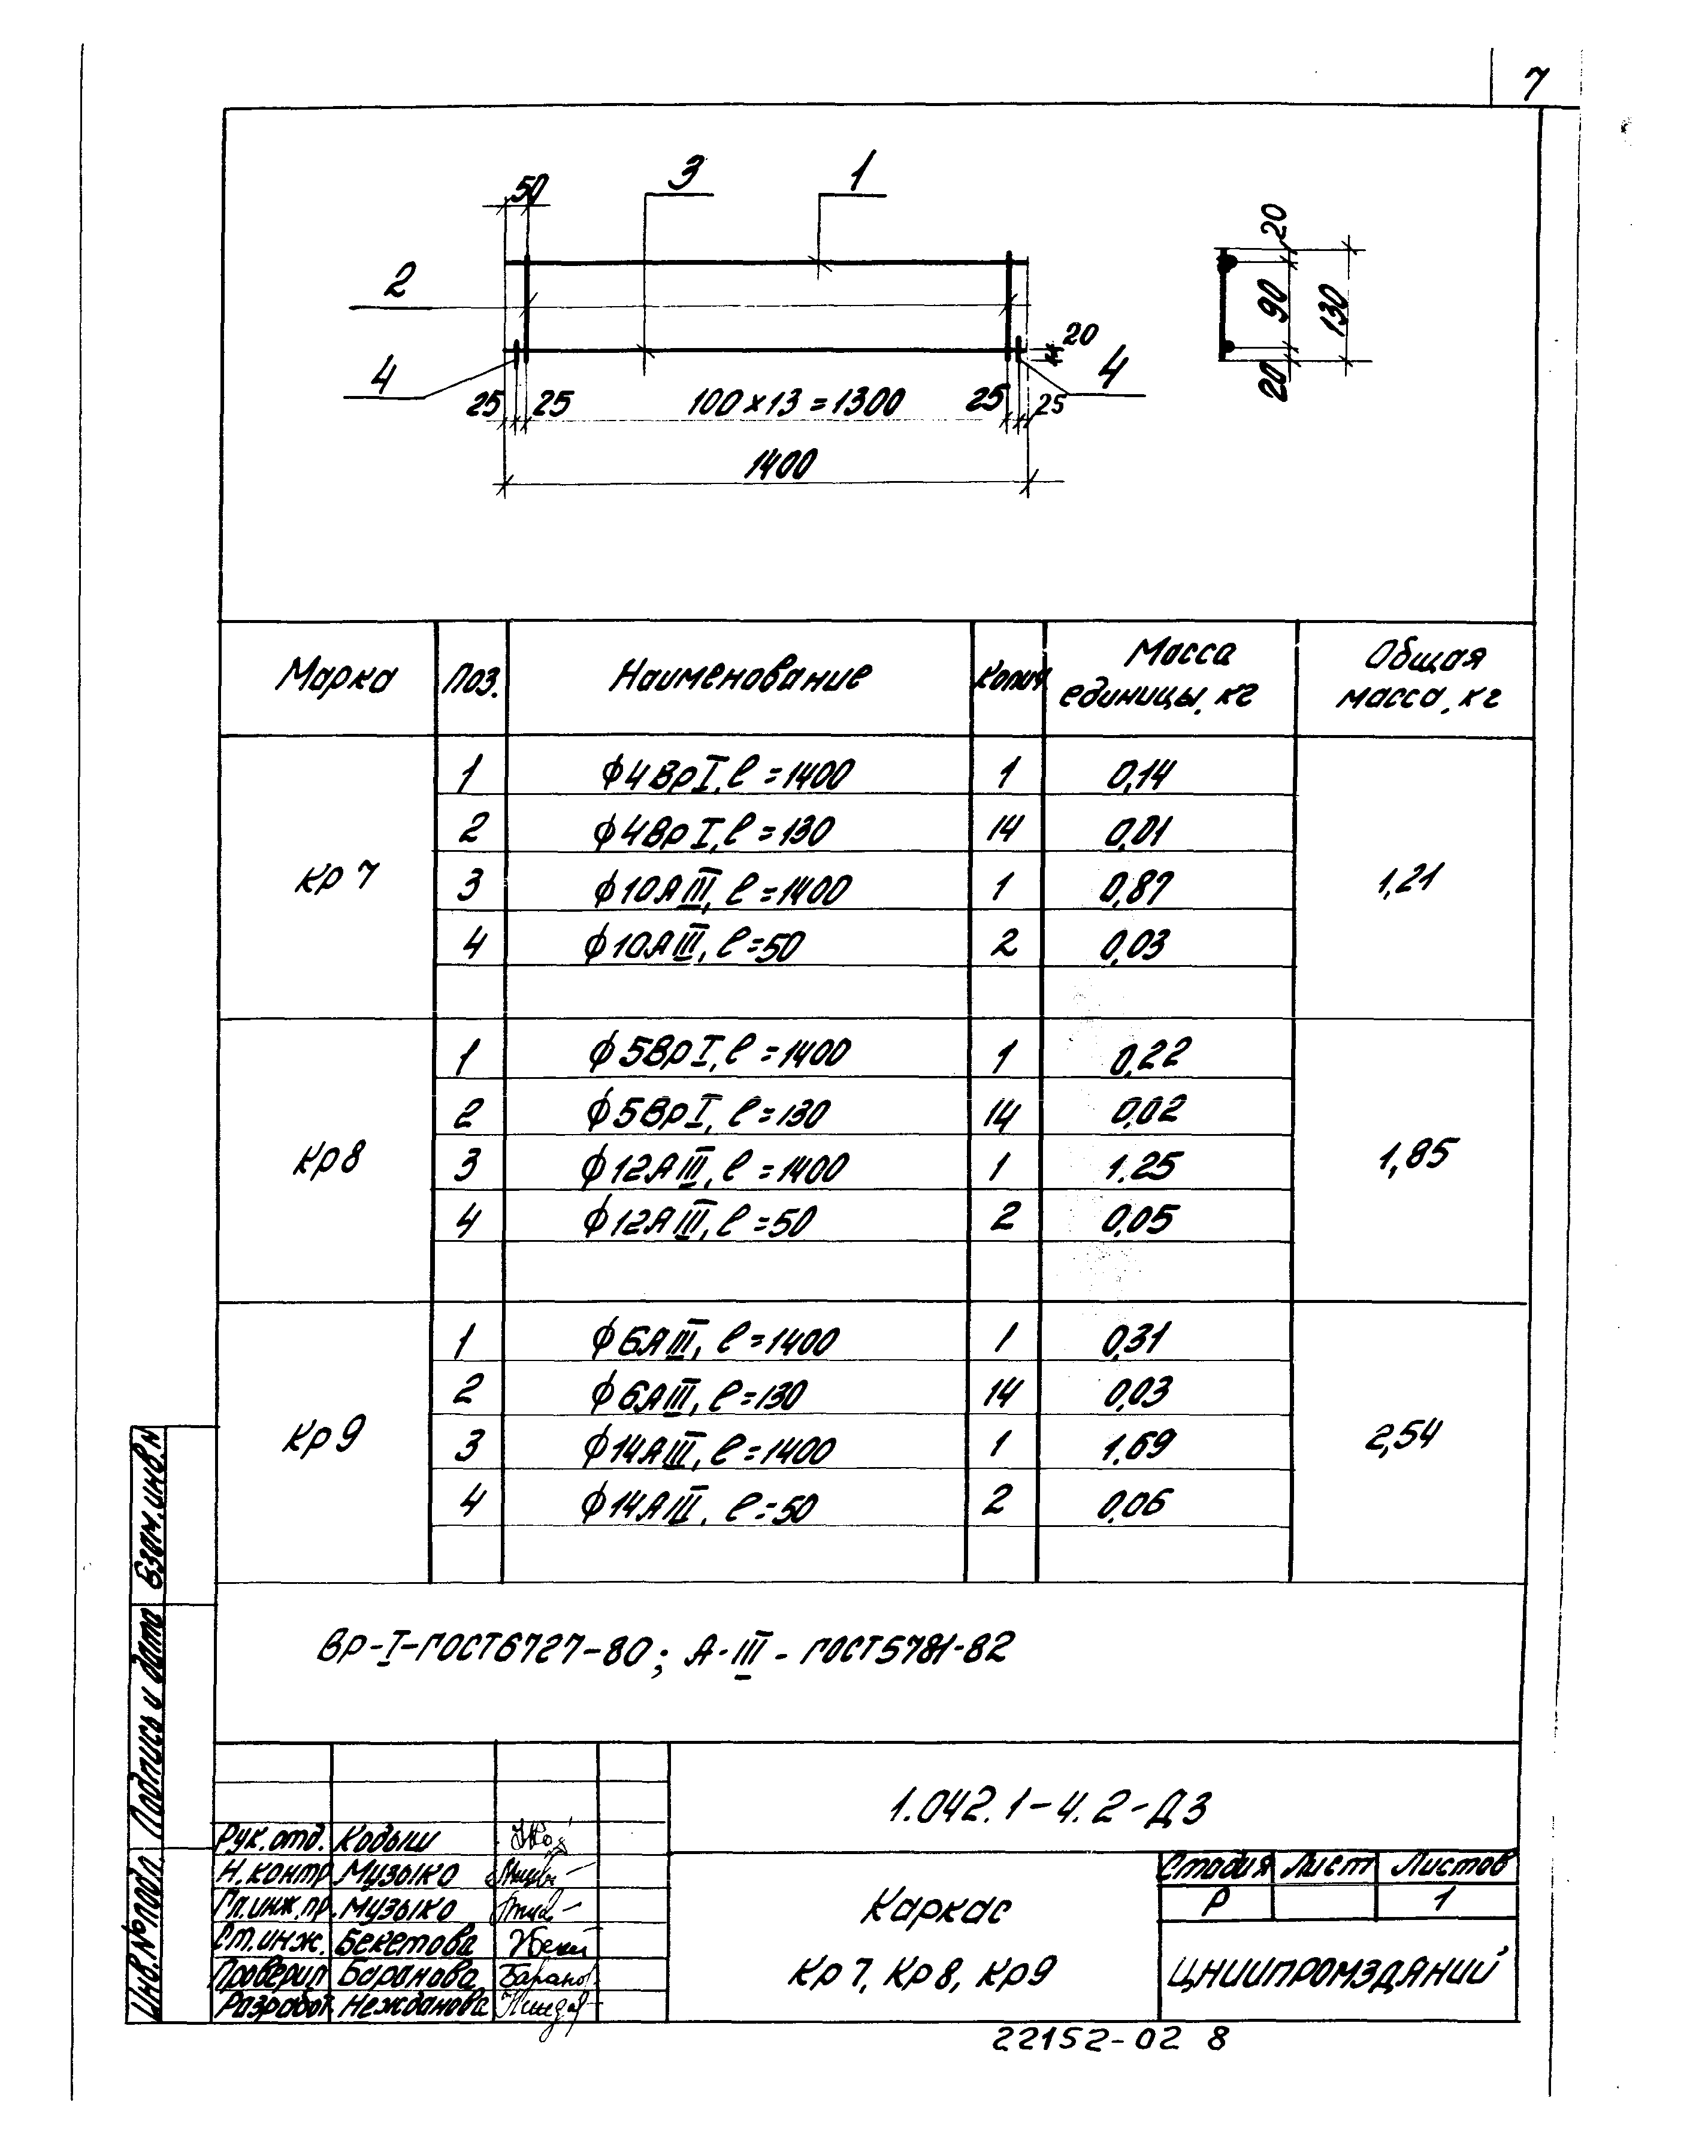 7
50
3
1
2
4
25
25
100×13=1300
25
25
20
4
1400
20
90
20
130
Марка Поз. Наименование Колич Масса единицы, кг Общая масса, кг
кр7
1 ϕ4ВрI, ℓ=1400 1 0,14
2 ϕ4ВрI, ℓ=130 14 0,01
3 ϕ10АIII, ℓ=1400 1 0,87
4 ϕ10АIII, ℓ=50 2 0,03
1,21
кр8
1 ϕ5ВрI, ℓ=1400 1 0,22
2 ϕ5ВрI, ℓ=130 14 0,02
3 ϕ12АIII, ℓ=1400 1 1.25
4 ϕ12АIII, ℓ=50 2 0,05
1,85
кр9
1 ϕ6АIII, ℓ=1400 1 0,31
2 ϕ6АIII, ℓ=130 14 0,03
3 ϕ14АIII, ℓ=1400 1 1.69
4 ϕ14АIII, ℓ=50 2 0,06
2,54
Вр-I-ГОСТ6727-80; А-III-ГОСТ5781-82
Взам.инв.N
Подпись и дата
Инв.№подл.
Рук.отд. Кодыш
Н.контр Музыко
Гл.инж.пр. Музыко
Ст.инж. Бекетова
Проверил Баранова
Разработ. Нежданова
1.042.1-4.2-Д3
Каркас
Кр7, Кр8, Кр9
Стадия Лист Листов
Р 1
ЦНИИПРОМЗДАНИЙ
22152-02 8